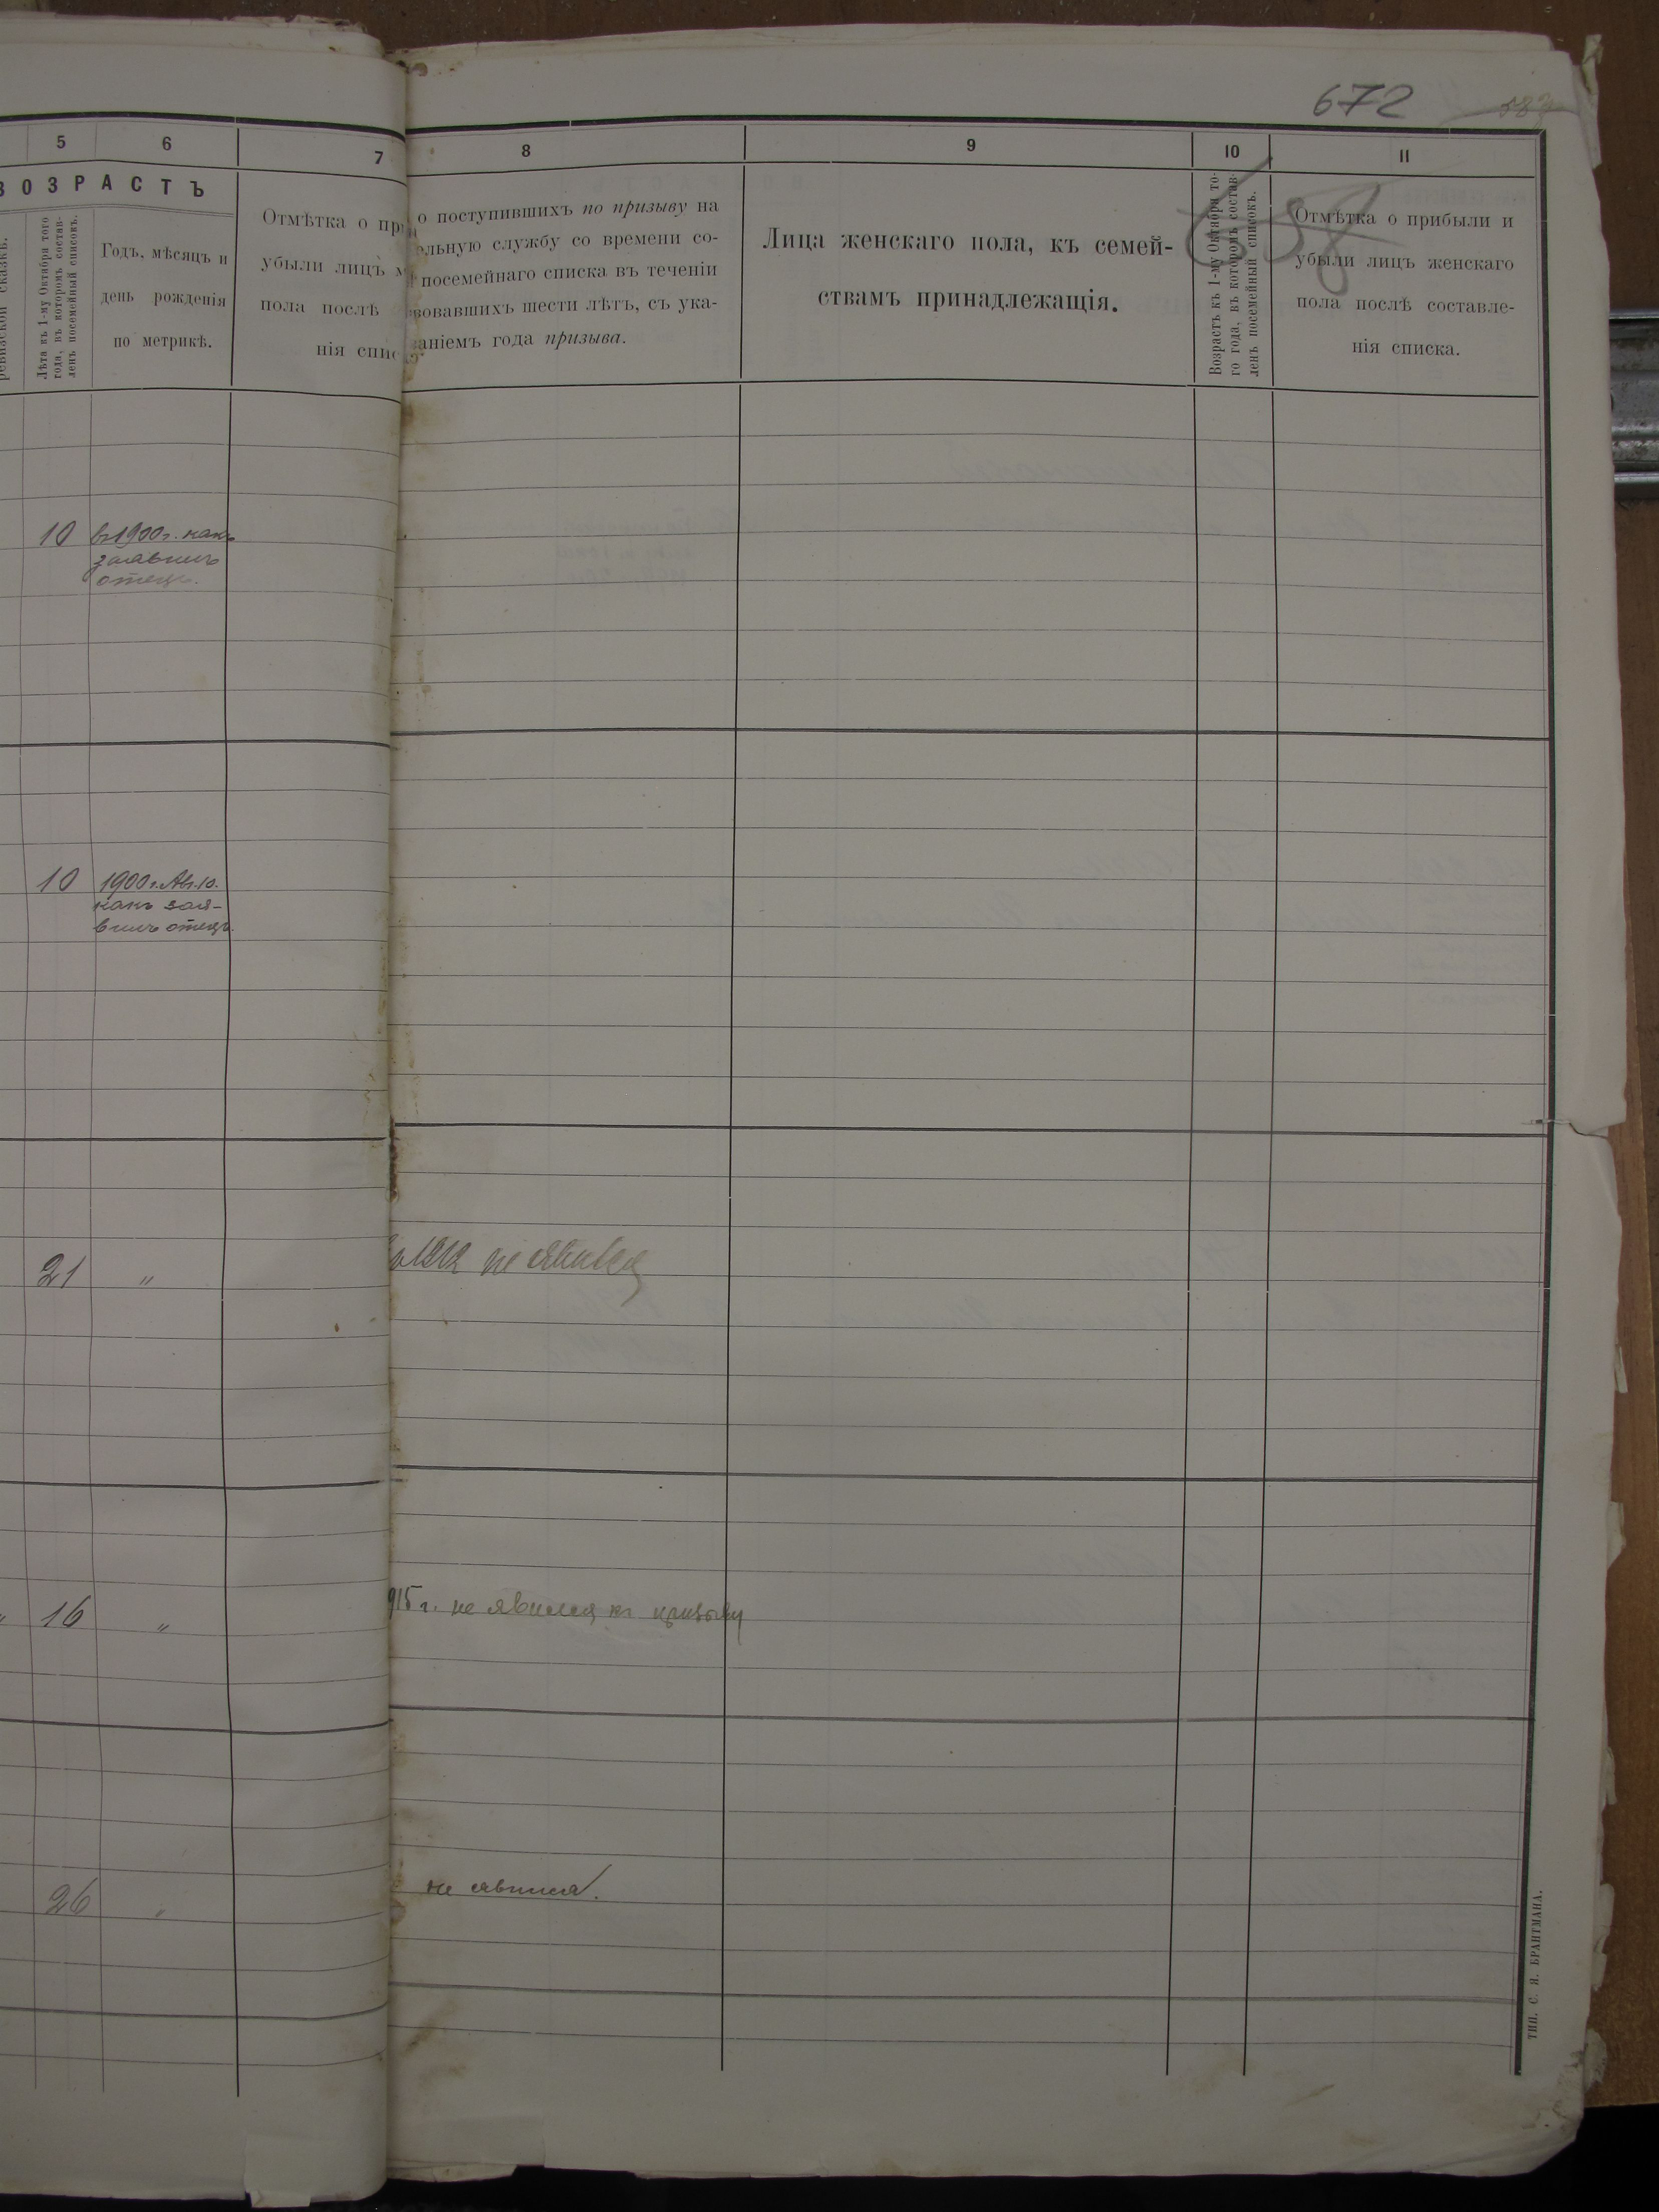 672
583
658
5
6
7
8
9
10
11
ВОЗРАСТЪ
ревизской сказкѣ.
Лѣта къ 1-му Октября того
года, въ которомъ состав-
ленъ посемейный списокъ.
Годъ, мѣсяцъ и
день рожденія
по метрикѣ.
Отмѣтка о при
убыли лицъ м
пола послѣ
нія спис
о поступившихъ по призыву на
ельную службу со времени со-
посемейнаго списка въ теченіи
вовавшихъ шести лѣтъ, съ ука-
заніемъ года призыва.
Лица женскаго пола, къ семей-
ствамъ принадлежащія.
Возрастъ къ 1-му Октября то-
го года, въ которомъ состав-
ленъ посемейный списокъ.
Отмѣтка о прибыли и
убыли лицъ женскаго
пола послѣ составле-
нія списка.
10 въ 1900 г. какъ
заявилъ
отецъ.
10 1900 г. Авг. 10.
какъ зая-
вилъ отецъ.
21 " 1912 не явился
" 16 " 915 г. не явился къ призыву
26 " не явился.
ТИП. С. Я. БРАНТМАНА.